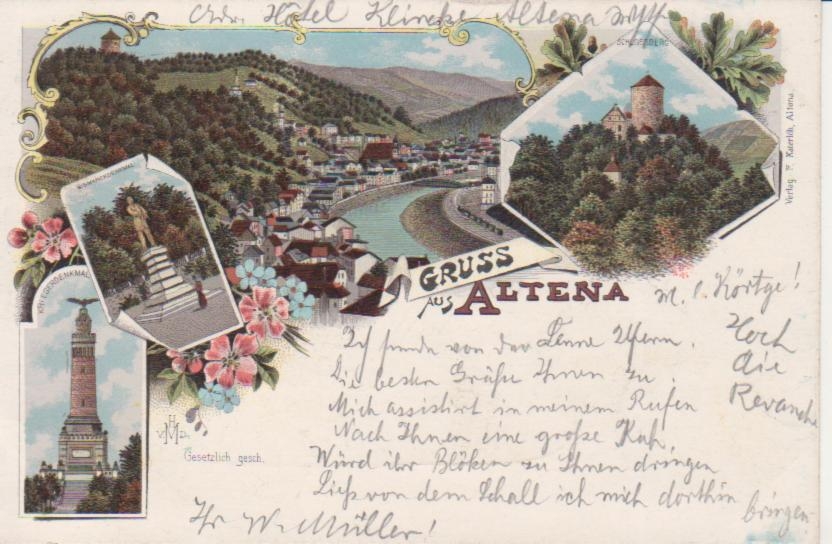 Adr. Hôtel Klincke Altena
SCHLOSSBERG
Verlag F. Katerlöh, Altena.
BISMARCKDENKMAL
KRIEGERDENKMAL
GRUSS
AUS ALTENA
M. l. Körtge!
Hoch
die
Revanche
Ich sende von der Lenne Ufern
Die besten Grüße Ihnen zu
Mich assistirt in meinem Rufen
Nach Ihnen eine große Kuh,
Würd ihr Blöken zu Ihnen dringen
Ließ von dem Schall ich mich dorthin bringen
Gesetzlich gesch.
Ihr W. Müller!